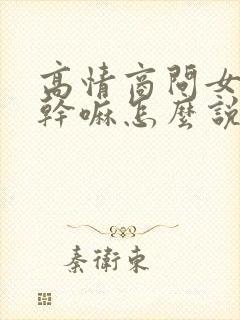 高情商問女
幹嘛怎麼說
秦衛東